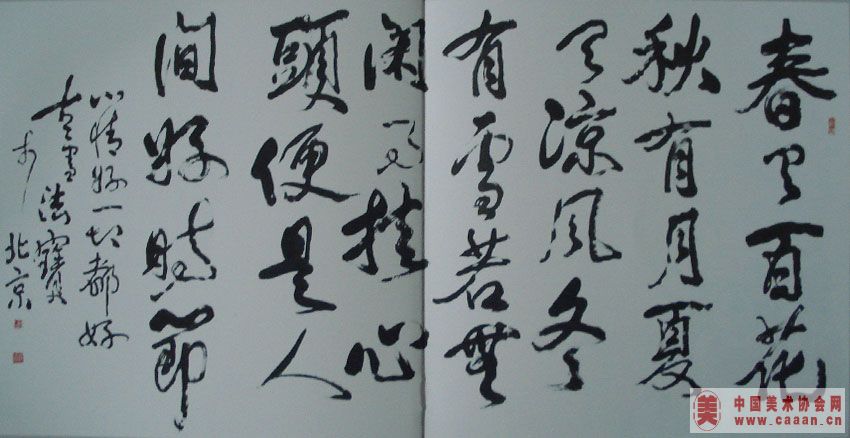 春有百花
秋有月夏
有凉风冬
有雪若無
闲事挂心
頭便是人
间好時節
心情好一切都好
書法寶
北京
中国美术协会网
www.caaan.cn
美